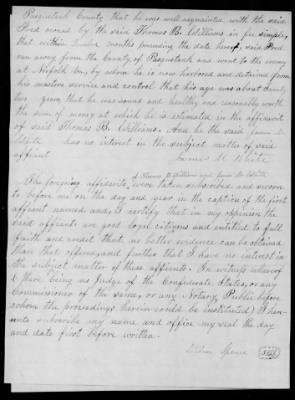 Pasquotank County that he was well acquainted with the said
Fred owned by the said Thomas B. Williams in fee simple;
that within twelve months preceding the date hereof, said Fred
ran away from the County of Pasquotank and went to the enemy
at Norfolk Va, by whom he is now harbored and detained from
his masters service and control: that his age was about twenty
two years that he was sound and healthy and reasonably worth
the sum of money at which he is estimated in the affidavit
of said Thomas B. Williams. And he the said James M.
White has no interest in the subject matter of said
affidavit James M. White
of Thomas B Williams and James M. White
The foregoing affidavits were taken subscribed and sworn
to before me on the day and year in the caption of the first
affidavit named and I certify that in my opinion the
said affiants are good loyal citizens and entitled to full
faith and credit that no better evidence can be obtained
than that offered, and further that I have no interest in
the subject matter of these affidavits. In witness whereof
(there being no Judge of the Confederate States, or any
Commissioner of the same, or any Notary Public before
whom the proceedings herein could be instituted) I here-
unto subscribe my name and office my seal the day
and date first before written.
Spence